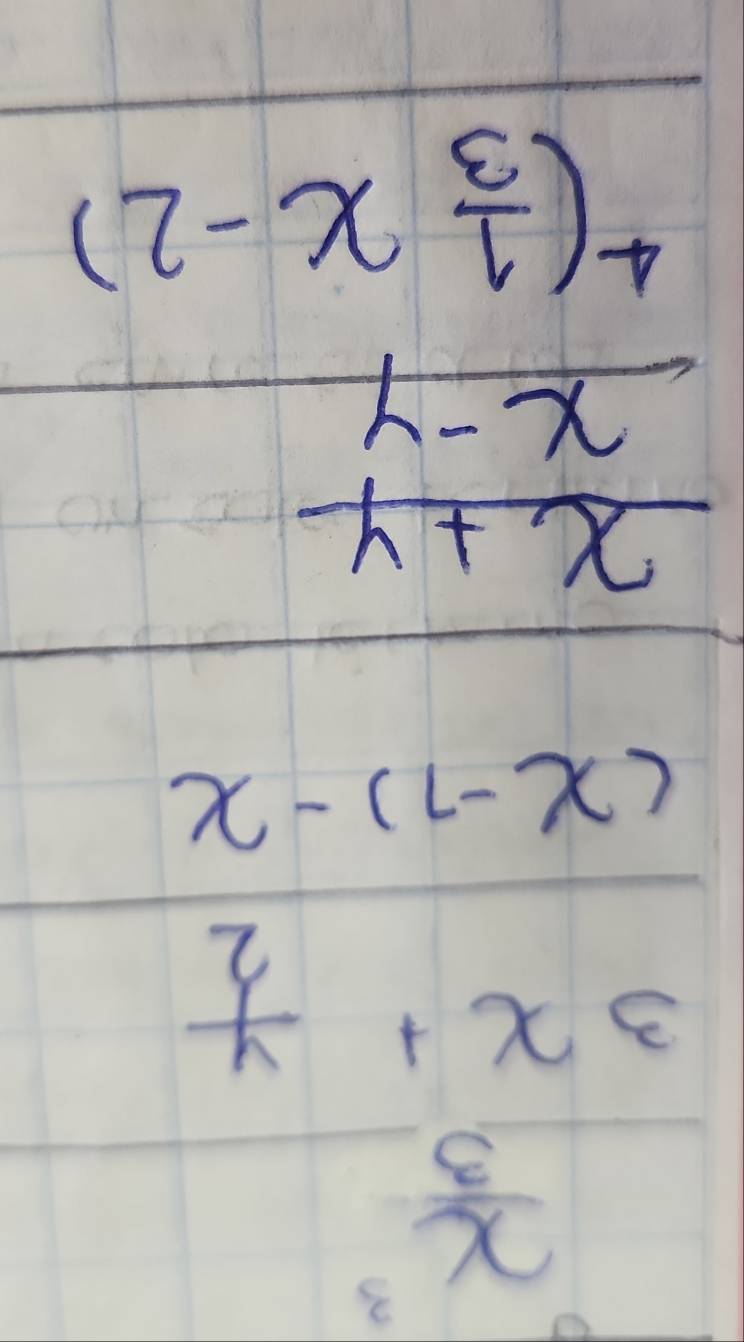 x/3
3x + y/2
(x - 1) - x
(x + y)/(x - y)
4(1/3 x - 2)